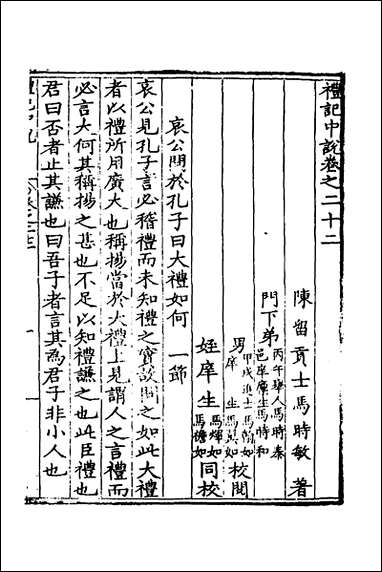 禮記中說卷之二十二
陳留貢士馬時敏著
門下弟
丙午舉人馬時泰
邑庠廩生馬時和
男
甲戌進士馬
庠生馬 如
校閱
姪庠生
馬燁如
馬襜如
同校
哀公問於孔子曰大禮如何 一節
哀公見孔子言必稽禮而未知禮之實故問之如此大禮
者以禮所用廣大也稱揚當於大禮上見謂人之言禮而
必言大何其稱揚之甚也不足以知禮謙之也此臣禮也
君曰否者止其謙也曰吾子者言其為君子非小人也